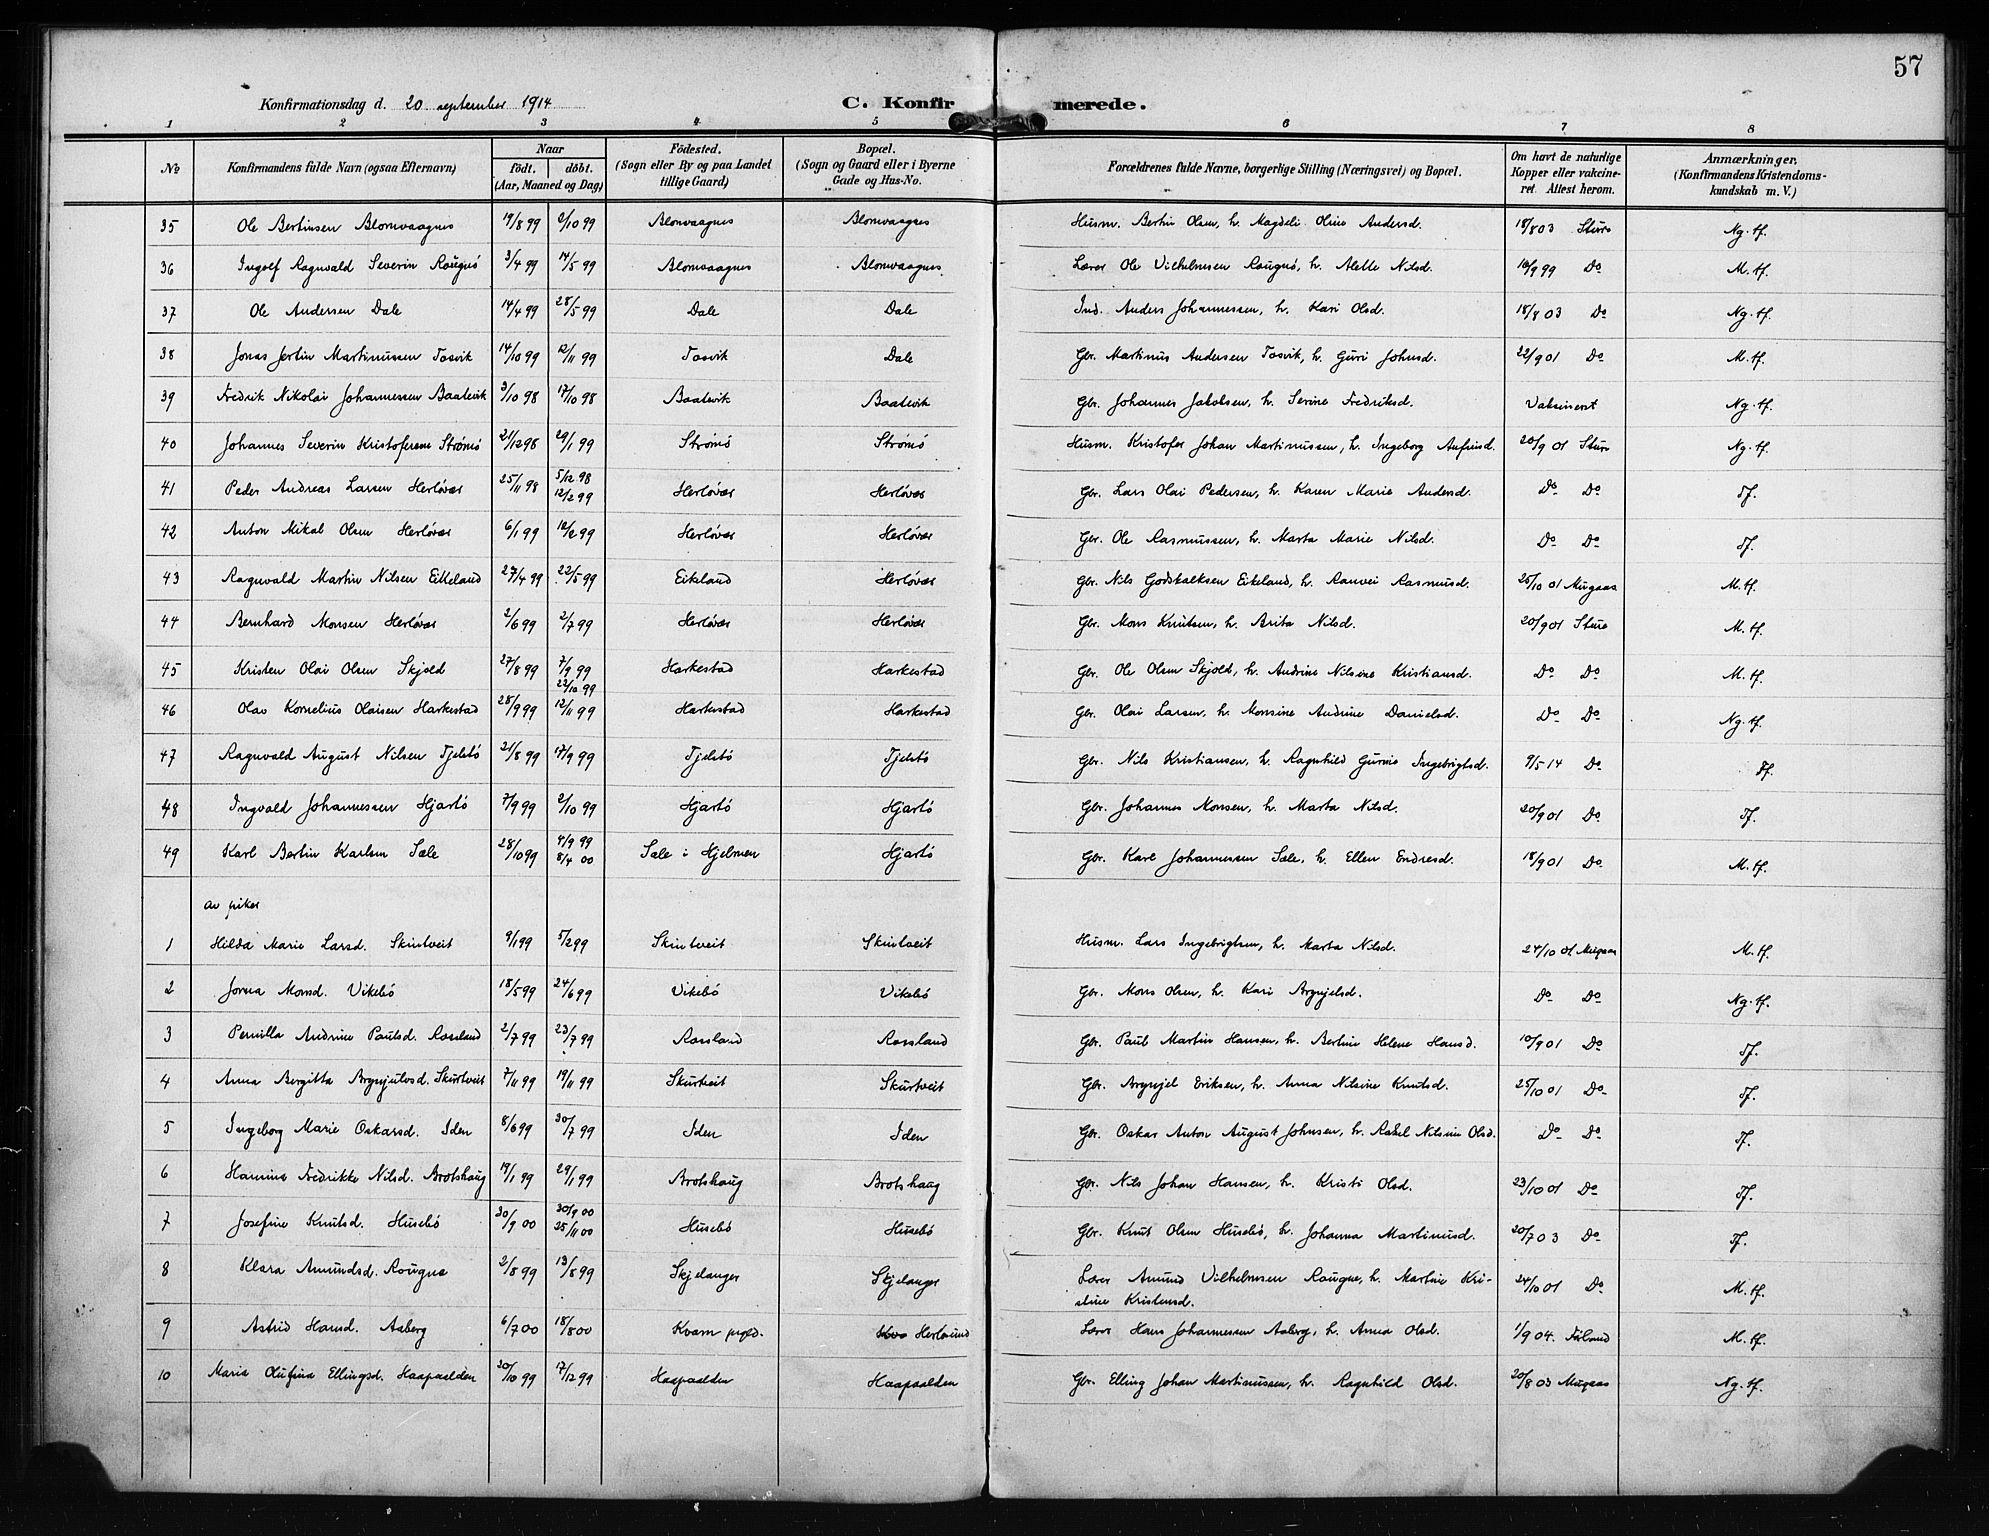 57
Konfirmationsdag d. 20. september 1914
C. Konfirmerede.
1 2 3 4 5 6 7 8
No Konfirmandens fulde Navn (ogsaa Efternavn) Naar født. døbt. (Aar, Maaned og Dag) Fødested. (Sogn eller By og paa Landet tillige Gaard) Bopæl. (Sogn og Gaard eller i Byerne Gade og Hus-No. Forældrenes fulde Navne, borgerlige Stilling (Næringsvei) og Bopæl. Om havt de naturlige Kopper eller vakcineret. Attest herom. Anmærkninger, (Konfirmandens Kristendomskundskab m. V.)
35 Ole Bertinsen Blomvaagnes 19/8 99 2/10 99 Blomvaagnes Blomvaagnes Husm. Bertin Olsen, h. Magdeli Oline Andersd. 18/8 03 Sture Ng. tf.
36 Ingolf Ragnvald Severin Rougnø 3/4 99 14/5 99 Blomvaagnes Blomvaagnes Lærer Ole Vilhelmsen Rougnø, h. Alette Nilsd. 18/9 99 Do M. tf.
37 Ole Andersen Dale 14/4 99 28/5 99 Dale Dale Ind. Anders Johannessen, h. Kari Olsd. 18/8 03 Do Ng. tf.
38 Jonas Jertin Martinussen Tosvik 14/10 99 12/11 99 Tosvik Dale Gbr. Martinus Andersen Tosvik, h. Guri Johnsd. 22/9 01 Do M. tf.
39 Fredrik Nikolai Johannessen Baatevik 3/10 98 17/10 98 Baatevik Baatevik Gbr. Johannes Jakobsen, h. Serine Fredriksd. Vaksinert Ng. tf.
40 Johannes Severin Kristofersen Strømø 21/12 98 29/1 99 Strømø Strømø Husm. Kristofer Johan Martinussen, h. Ingeborg Anfinnd. 20/9 01 Sture Ng. tf.
41 Peder Andreas Larsen Herløvær 25/11 98 5/12 98 12/2 99 Herløvær Herløvær Gbr. Lars Olai Pedersen, h. Karen Marie Andersd. Do Do Tf.
42 Anton Mikal Olsen Herløvær 6/1 99 12/2 99 Herløvær Herløvær Gbr. Ole Rasmussen, h. Marta Marie Nilsd. Do Do Tf.
43 Ragnvald Martin Nilsen Eikeland 27/4 99 22/5 99 Eikeland Herløvær Gbr. Nils Godskalksen Eikeland, h. Ranvei Rasmusd. 25/10 01 Mugaas M. tf.
44 Bernhard Monsen Herløvær 2/6 99 2/7 99 Herløvær Herløvær Gbr. Mons Knutsen, h. Brita Nilsd. 20/9 01 Sture M. tf.
45 Kristen Olai Olsen Skjold 27/8 99 7/9 99 22/10 99 Harkestad Harkestad Gbr. Ole Olsen Skjold, h. Andrine Nilsine Kristiansd. Do Do M. tf.
46 Olav Kornelius Olaisen Harkestad 28/9 99 12/11 99 Harkestad Harkestad Gbr. Olai Larsen, h. Monsine Andrine Danielsd. Do Do Ng. tf.
47 Ragnvald August Nilsen Tjelstø 21/8 99 17/9 99 Tjelstø Tjelstø Gbr. Nils Kristiansen, h. Ragnhild Gurine Ingebrigtsd. 9/5 14 Do Tf.
48 Ingvald Johannessen Hjartø 7/9 99 2/10 99 Hjartø Hjartø Gbr. Johannes Monsen, h. Marta Nilsd. 20/9 01 Do Tf.
49 Karl Bertin Karlsen Sæle 28/10 99 4/9 99 8/4 00 Sæle i Hjelmen Hjartø Gbr. Karl Johannessen Sæle, h. Ellen Endresd. 18/9 01 Do M. tf.
av piker
1 Hilda Marie Larsd. Skintveit 9/1 99 5/2 99 Skintveit Skintveit Husm. Lars Ingebrigtsen, h. Marta Nilsd. 24/10 01 Mugaas M. tf.
2 Jorna Monsd. Vikebø 18/5 99 24/6 99 Vikebø Vikebø Gbr. Mons Olsen, h. Kari Brynjelsd. Do Do Ng. tf.
3 Pernilla Andrine Paulsd. Rossland 2/7 99 23/7 99 Rossland Rossland Gbr. Paul Martin Hansen, h. Bertine Helene Hansd. 10/9 01 Do Tf.
4 Anna Birgitta Brynjulvsd. Skurtveit 7/11 99 19/11 99 Skurtveit Skurtveit Gbr. Brynjel Eriksen, h. Anna Nilsine Knutsd. 25/10 01 Do Tf.
5 Ingeborg Marie Oskarsd. Iden 8/6 99 30/7 99 Iden Iden Gbr. Oskar Anton August Johnsen, h. Rakel Nilsine Olsd. Do Do Tf.
6 Hansina Fredrikke Nilsd. Brotshaug 19/1 99 29/1 99 Brotshaug Brotshaug Gbr. Nils Johan Hansen, h. Kristi Olsd. 23/10 01 Do Tf.
7 Josefine Knutsd. Husebø 30/9 00 30/9 00 25/11 00 Husebø Husebø Gbr. Knut Olsen Husebø, h. Johanna Martinusd. 20/7 03 Do Tf.
8 Klara Amundsd. Rougnø 2/8 99 13/8 99 Skjelanger Skjelanger Lærer Amund Vilhelmsen Rougnø, h. Martine Kristine Kristensd. 24/10 01 Do M. tf.
9 Astrid Hansd. Aaberg 6/7 00 18/8 00 Kvam prgld. Herløsund Lærer Hans Johannessen Aaberg, h. Anna Olsd. 1/9 04. M. tf.
10 Maria Olufina Ellingsd. Haapoalden 30/10 99 17/12 99 Haapoalden Haapoalden Gbr. Elling Johan Martinussen, h. Ragnhild Olsd. 20/8 03 Mugaas Ng. tf.